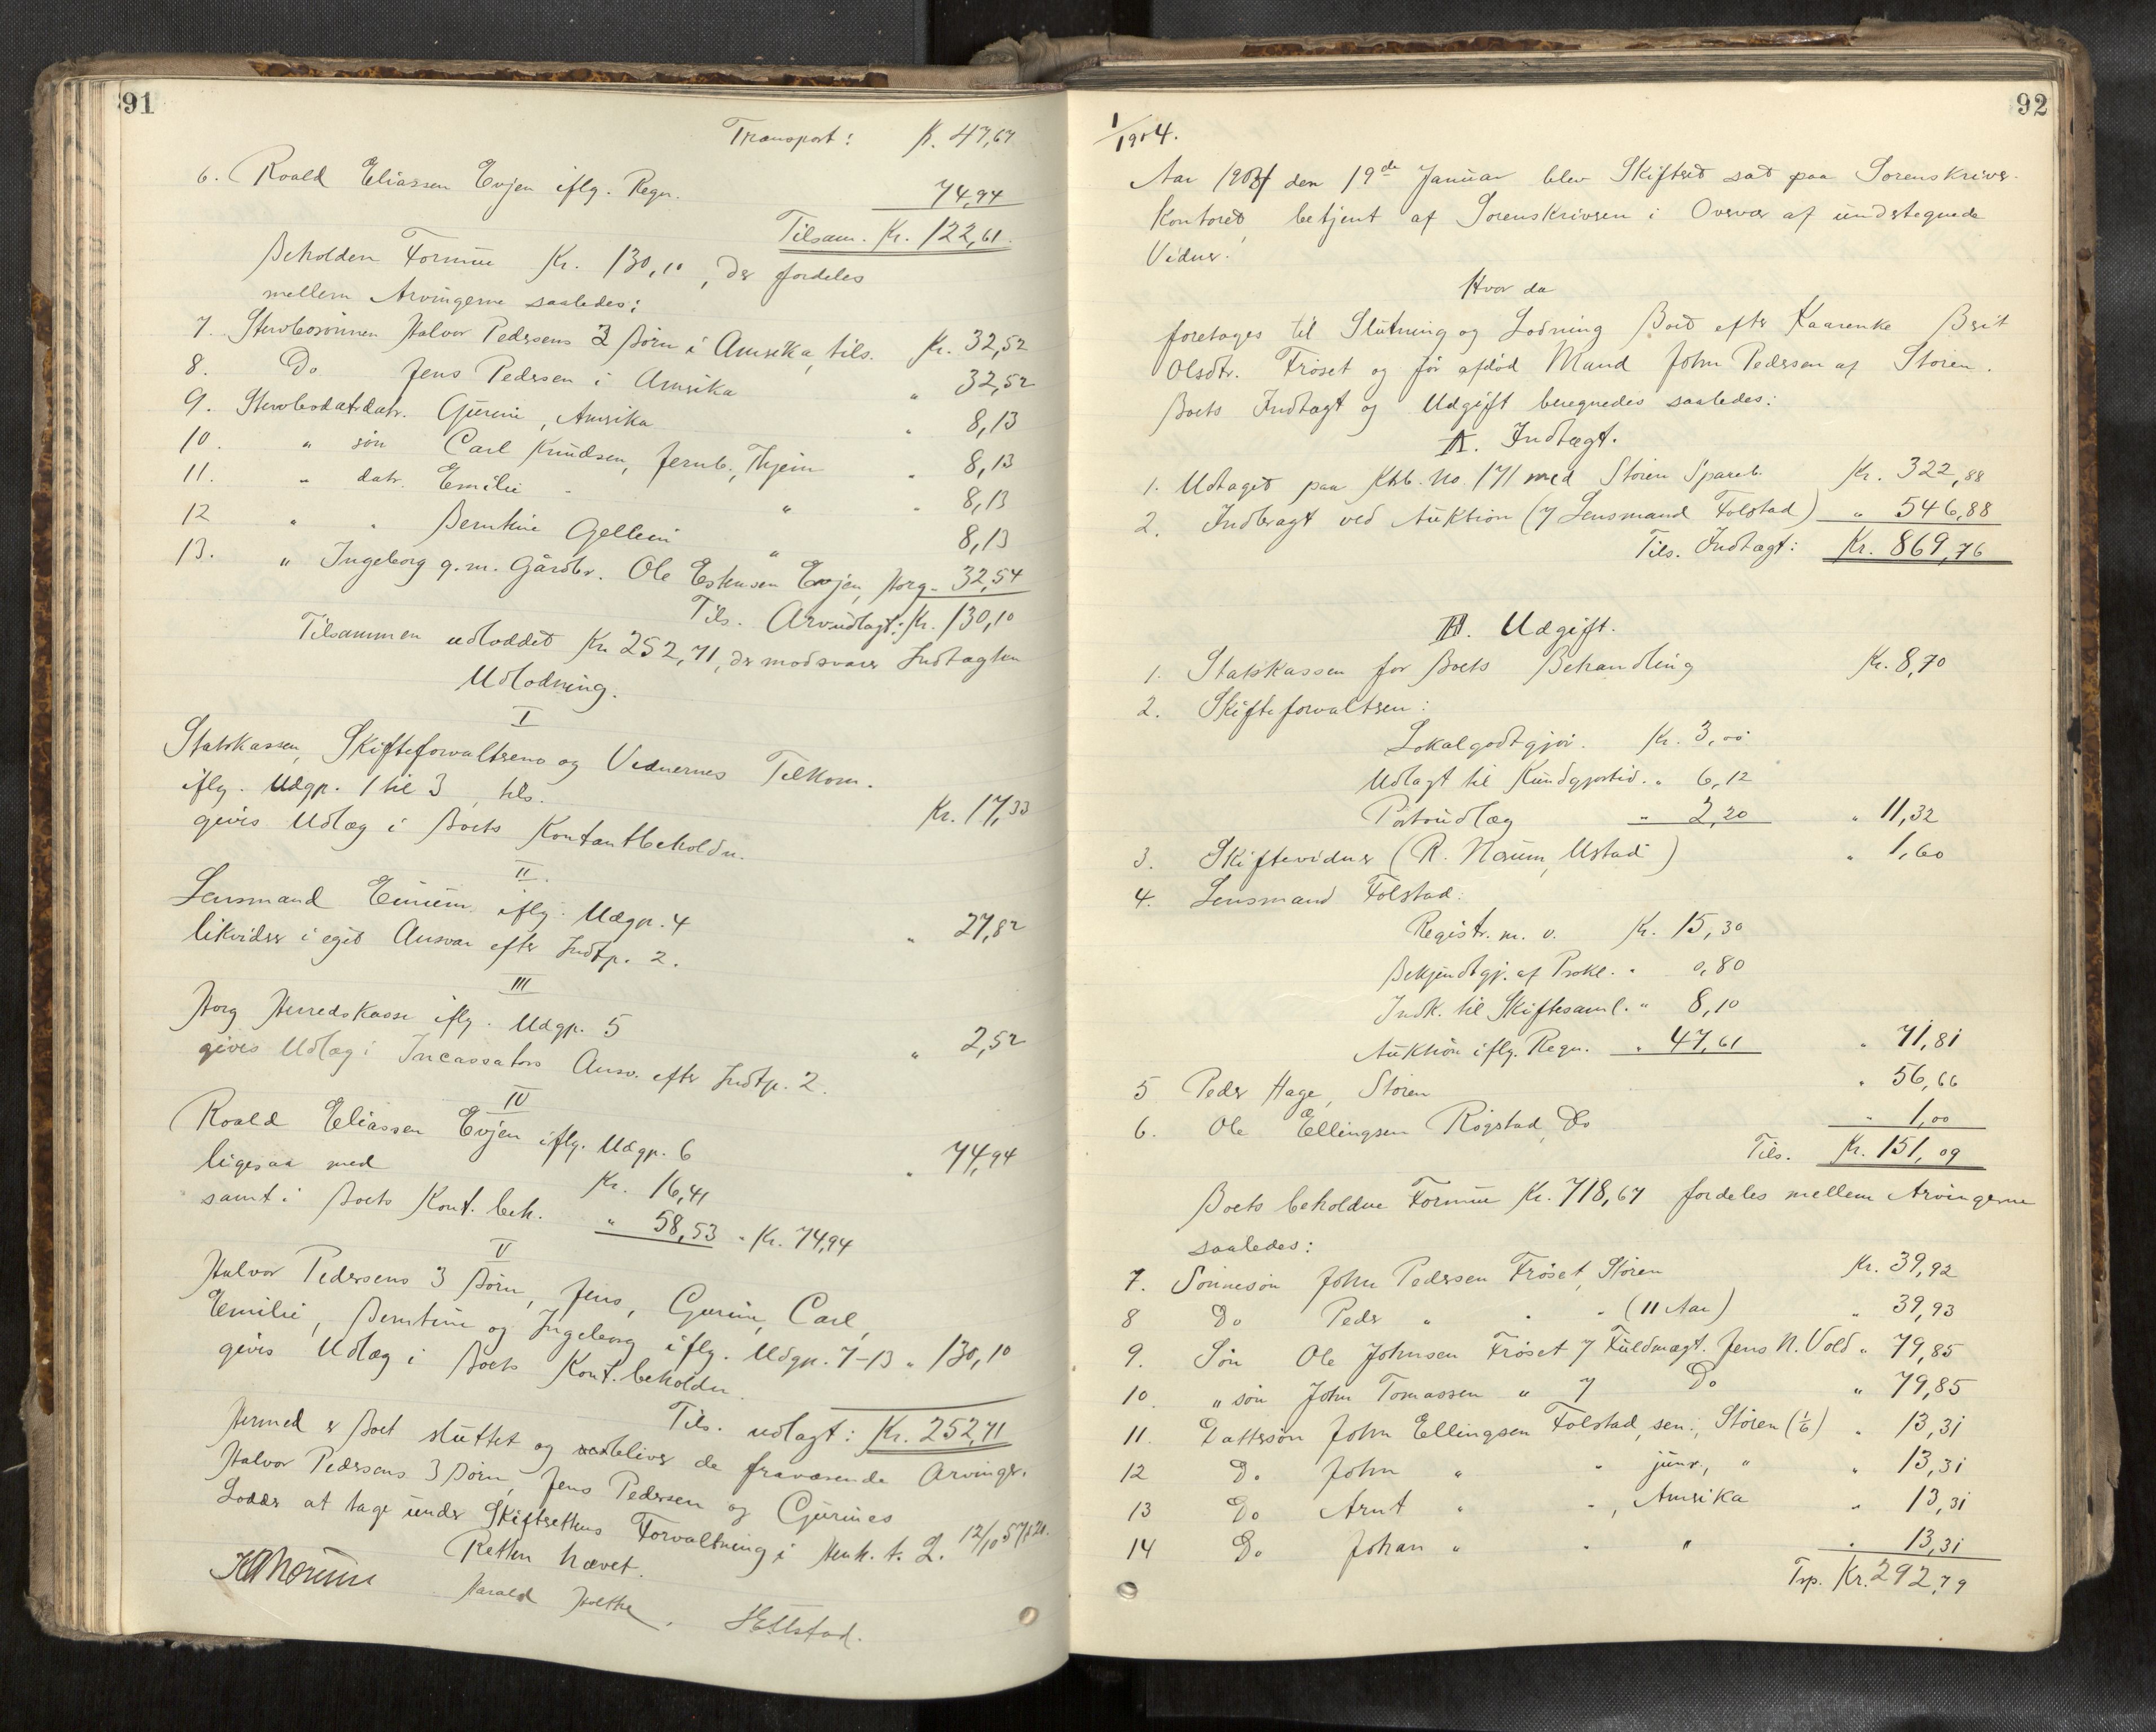 91
Transport: K. 47,67
6. Roald Eliassen Evjen iflg. Regn. 74,94
Tilsam. Kr. 122,61
Beholden Formue Kr. 130,10, der fordeles
mellem Arvingerne saaledes:
7. Stervbosønnen Halvor Pedersens 3 Børn i Amerika, tils. Kr. 32,52
8. Do Jens Pedersen i Amerika " 32,52
9. Stervbodatrdatr. Gurine, Amerika " 8,13
10. " søn Carl Knudsen, Jernb., Thjem " 8,13
11. " datr. Emilie " " 8,13
12 " " Berntine Gellein " 8,13
13. " Ingeborg g.m. Gårdbr. Ole Estensen Evjen, Horg - 32,54
Tils. Arvudlagt: Kr. 130,10
Tilsammen udloddet Kr 252,71, der modsvarer Indtægten
Udlodning.
I
Statskassen, Skifteforvalterens og Vidnernes Tilkom.
iflg. Udgp. 1 til 3, tils. Kr. 17,33
gives Udlæg i Boets Kontantbeholdn.
II.
Lensmand iflg. Udgp. 4 " 27,82
likvider i eget Ansvar efter Indtp. 2.
III
Horg Herredskasse iflg. Udgp. 5 " 2,52
gives Udlæg i Incassators Ansv. efter Indtp. 2.
IV
Roald Eliassen Evjen iflg. Udgp. 6 " 74,94
ligesaa med Kr. 16,41
samt i Boets Kont. beh. " 58,53 - Kr. 74,94
V
Halvor Pedersens 3 Børn, Jens, Gurine, Carl,
Emilie, Berntine og Ingeborg iflg. Udgp. 7-13 " 130,10
gives Udlæg i Boets Kont. beholdn.
Tils. udlagt: Kr. 252,71
Hermed er Boet sluttet og bliver de fraværende Arvinger.
Halvor Pedersens 3 Børn, Jens Pedersen og Gurines
Lodder at tage under Skifterettens Forvaltning i
Retten hævet.
Harald Holthe, HEllstad.
92
1/1904.
Aar 1904 den 19de Januar blev Skifteret sat paa Sorenskriver-
kontoret, betjent af Sorenskriveren i Overvær af undertegnede
Vidner.
Hvor da
foretoges til Slutning og Lodning Boet efter Kaarenke Brit
Olsdtr. Frøset og før afdød Mand John Pedersen af Støren.
Boets Indtægt og Udgift beregnedes saaledes:
A. Indtægt.
1. Udtaget paa Ktrb. No 171 med Støren Spareb. Kr. 322,88
2. Indbragt ved Auktion (v/ Lensmand Folstad) " 546,88
Tils. Indtægt: Kr. 869,76
B. Udgift.
1. Statskassen for Boets Behandling Kr. 8,70
2. Skifteforvalteren:
Lokalgodtgjør. Kr. 3,00
Udlagt til Kundgjørtid. " 6,12
Portoudlæg " 2,20 " 11,32
3. Skiftevidner (R. Norum, Ustad) " 1,60
4. Lensmand Folstad:
Registr. m. v. Kr. 15,30
Bekjendtgj. af Prokl. " 0,80
Indk. til Skiftesaml. " 8,10
Auktion iflg. Regn. " 47,61 " 71,81
5 Peder Hage, Støren " 56,66
6. Ole Ellingsen Rogstad, Do " 1,00
Tils. Kr. 151,09
Boets beholdne Formue Kr. 718,67 fordeles mellem Arvingerne
saaledes:
7. Sønnesøn John Pedersen Frøset, Støren Kr. 39,92
8 Do Peder " " " (11 Aar) " 39,93
9. Søn Ole Johnsen Frøset v/ Fuldmægt. Jens N. Vold " 79,85
10. " søn John Tomassen " v/ Do " 79,85
11. Dattersøn John Ellingsen Folstad, sen., Støren (1/6) " 13,31
12 Do John " " junr., " " 13,31
13 Do Arnt " ", Amerika " 13,31
14 Do Johan " " " " 13,31
Trp. Kr. 292,79